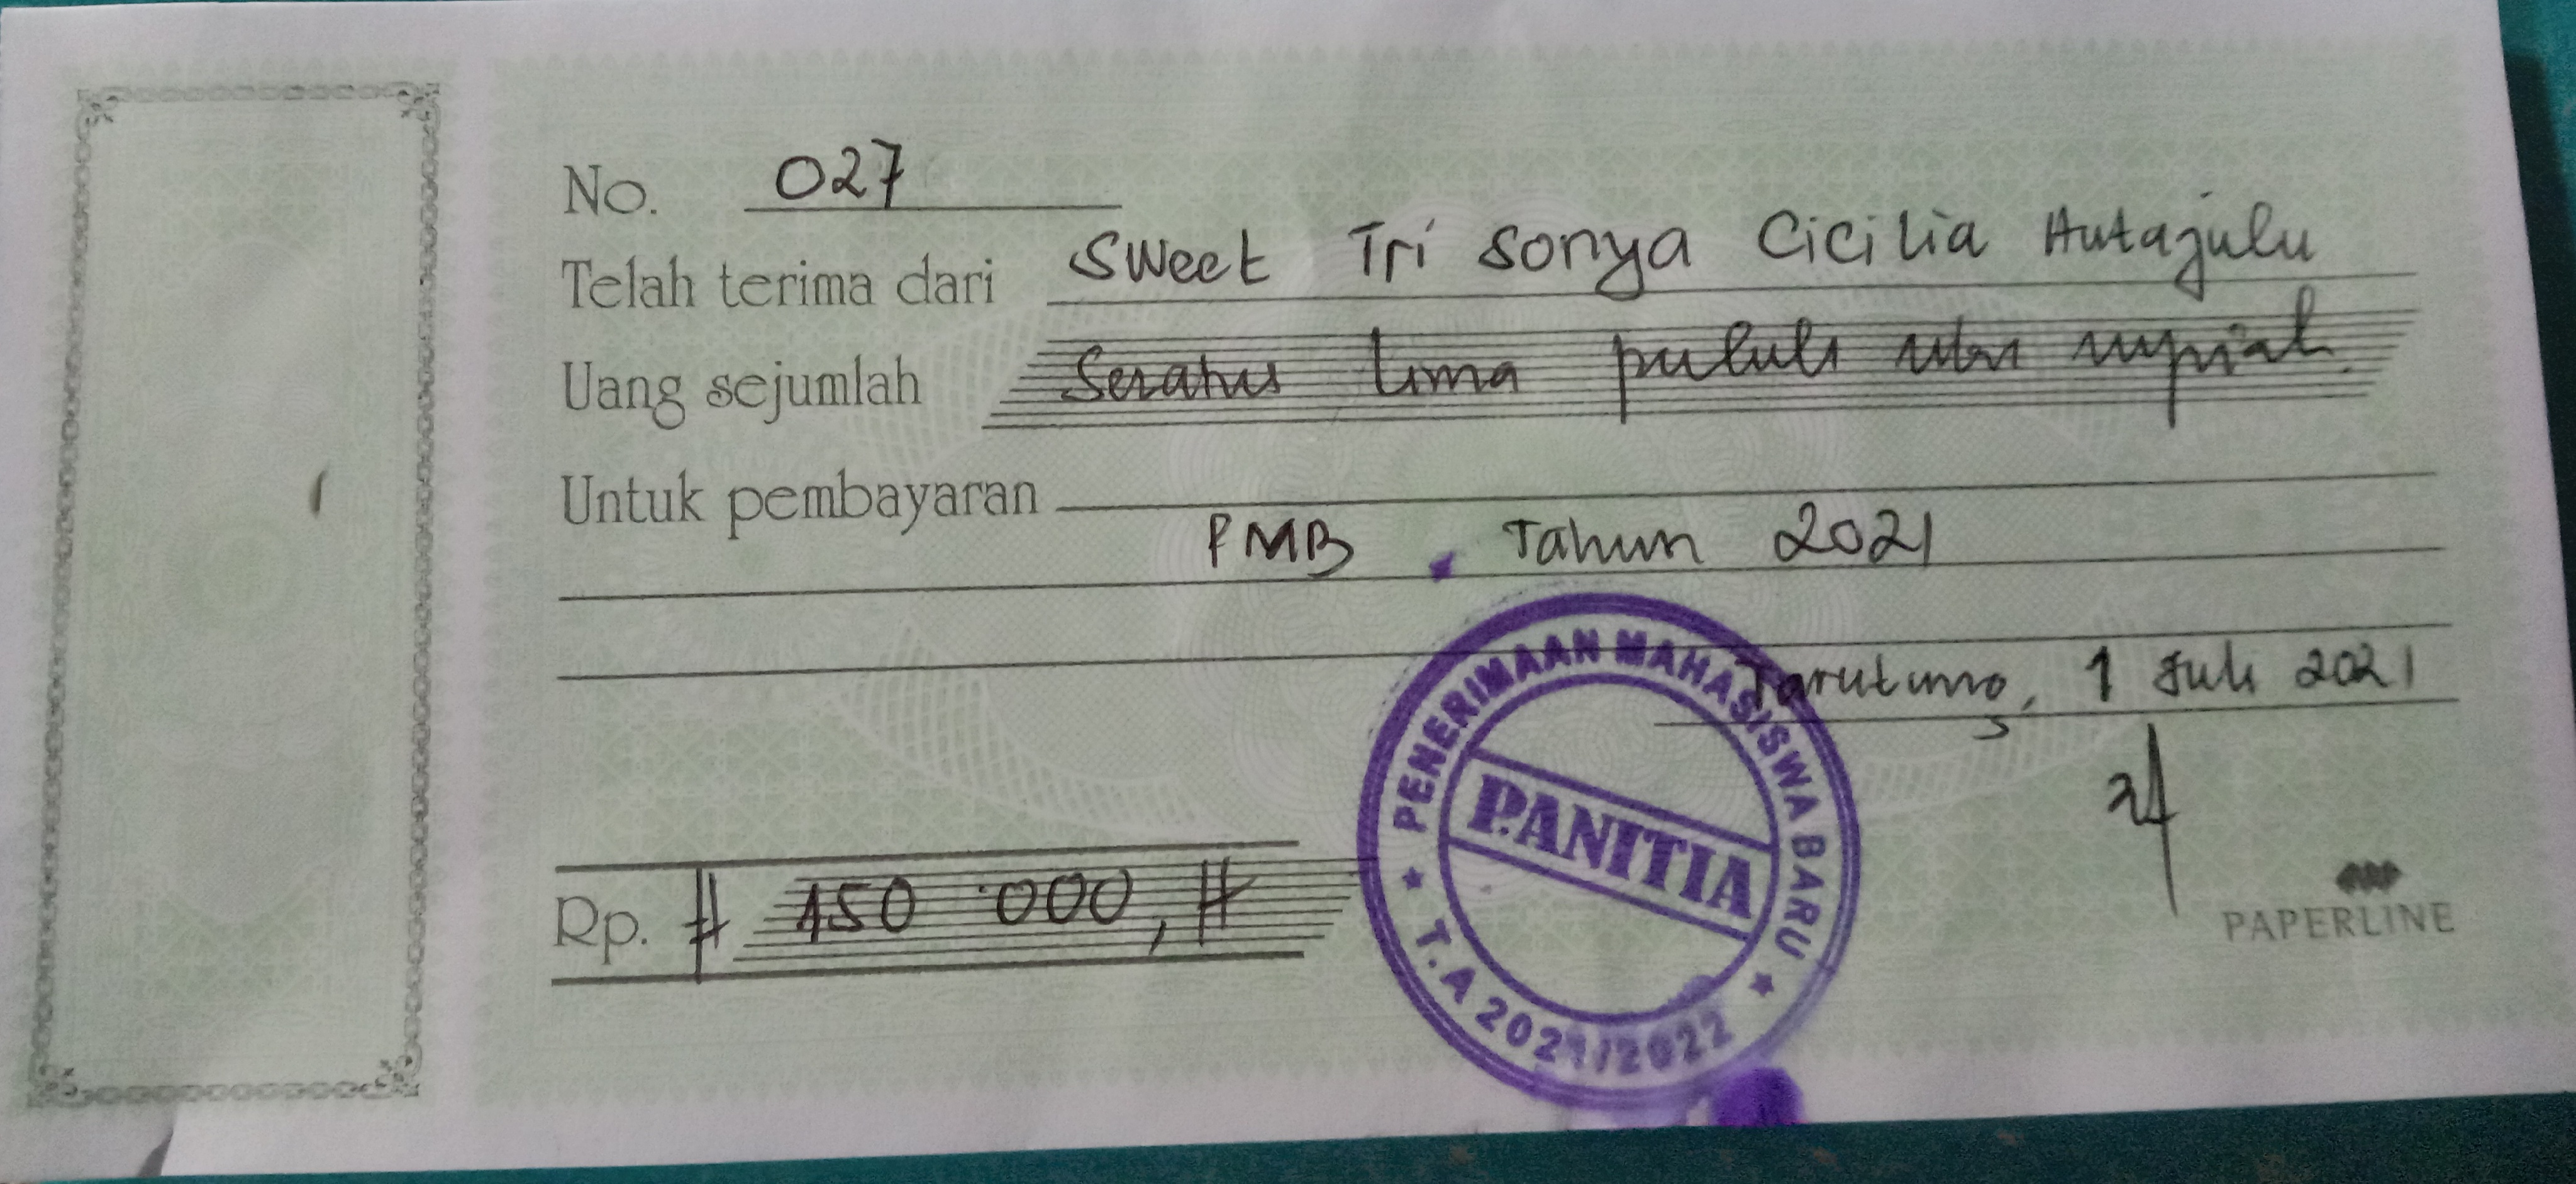 No. 027
Telah terima dari Sweet Tri Sonya Cicilia Hutajulu
Uang sejumlah Seratus lima puluh ribu rupiah
Untuk pembayaran
PMB Tahun 2021
Tarutung, 1 Juli 2021
PENERIMAAN MAHASISWA BARU
PANITIA
T.A 2021/2022
Rp. # 150 000, #
PAPERLINE